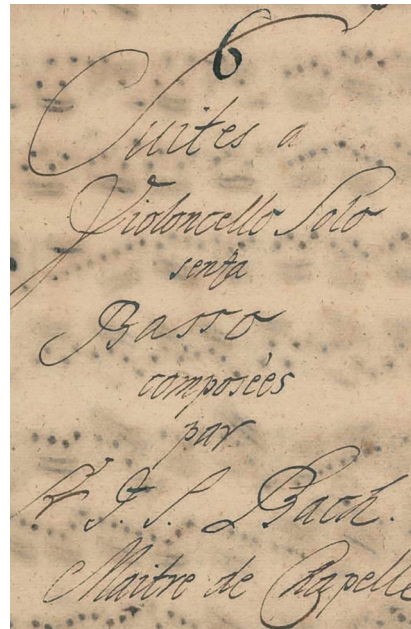 6
Suites a
Violoncello Solo
senza
Basso
composées
par
Sr. J. S. Bach.
Maitre de Chapelle